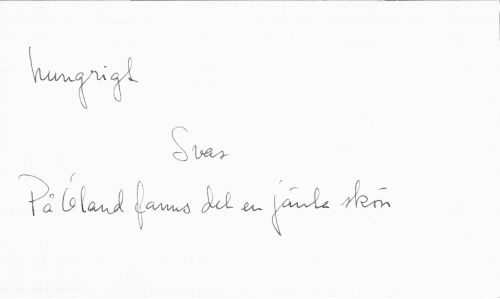 hungrigt
Svar
På Öland fanns det en jänta skön